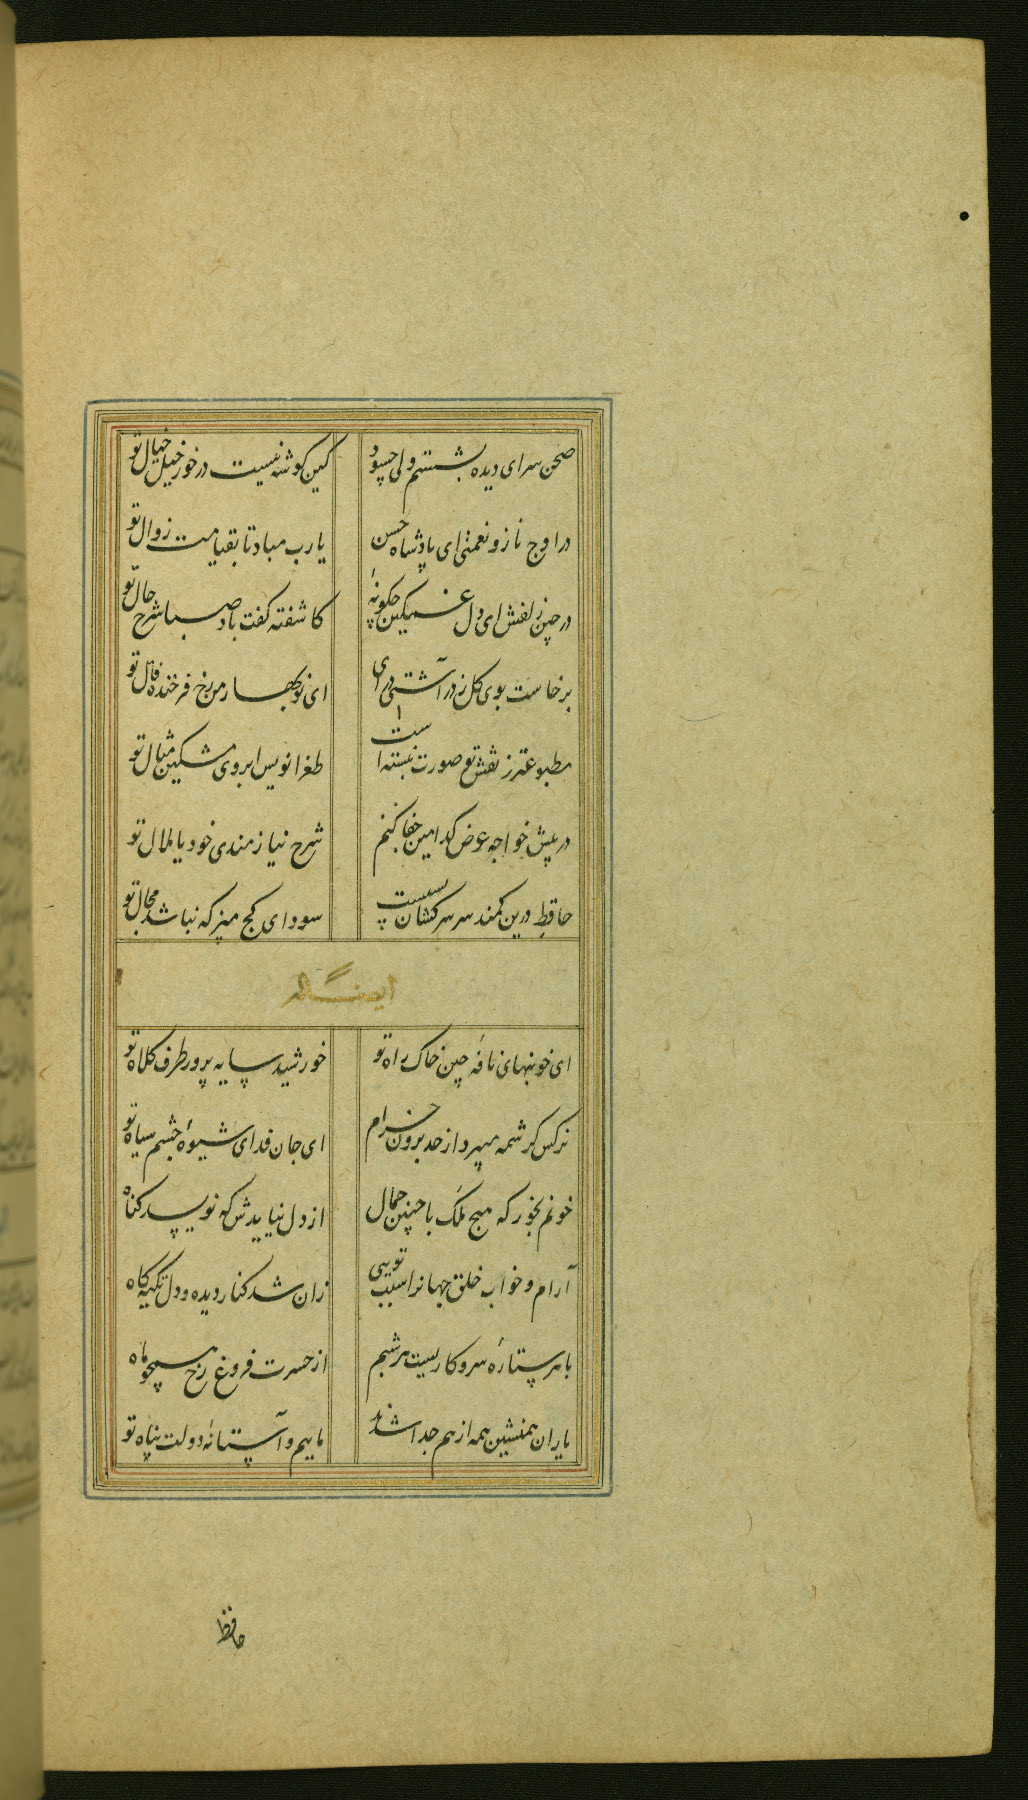 صحن سرای دیده بشستم ولی چسود کین کوشه نیست در خور خیل خیال تو
در اوج ناز و نعمتی ای پادشاه حسن یارب مباد تا بقیامت زوال تو
در چین زلفش ای دل غمکین چکونهٔ کاشفته کفت باد صبا شرح حال تو
برخاست بوی کل ز در آشتی درآی ای نوبهار من رخ فرخنده فال تو
مطبوعتر ز نقش تو صورت نبسته است طغرا نویس ابروی مشکین مثال تو
در پیش خواجه عرض کدامین جفا کنم شرح نیازمندی خود یا ملال تو
حافظ درین کمند سر سرکشان بسیست سودای کج مپز که نباشد مجال تو
ای خونبهای نافهٔ چین خاک راه تو خورشید سایه پرور طرف کلاه تو
نرکس کرشمه میبرد از حد برون خرام ای جان فدای شیوهٔ چشم سیاه تو
خونم بخور که هیچ ملک با چنین جمال از دل نیایدش که نویسد کناه
آرام و خواب خلق جهانرا سبب تویی زان شد کنار دیده و دل تکیه کاه
با هر ستارهٔ سر و کاریست هر شبم از حسرت فروغ رخ همچو ماه
یاران همنشین همه از هم جدا شدند ماییم و آستانهٔ دولت پناه تو
حافظ